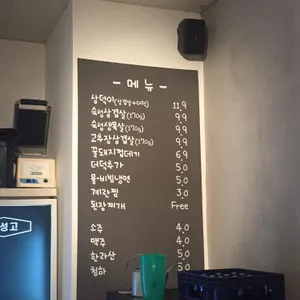 - 메뉴 -
상덕이(삼겹살+더덕) 11.9
숙성삼겹살(170g) 9.9
숙성생목살(170g) 9.9
고추장삼겹살(170g) 9.9
꿀돼지껍데기 6.9
더덕추가 5.0
물·비빔냉면 5.0
계란찜 3.0
된장찌개 Free
소주 4.0
맥주 4.0
한라산 5.0
청하 5.0
성고